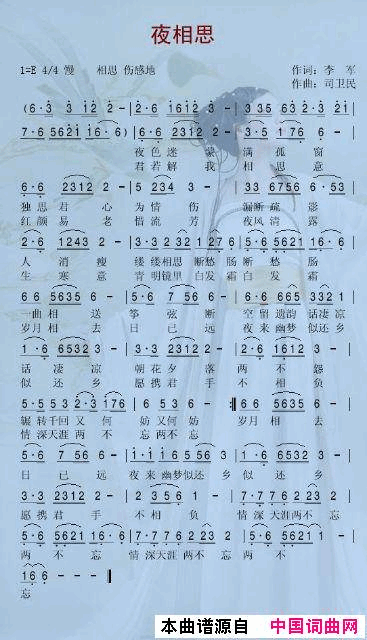 夜相思
1=E 4/4 慢 相思 伤感地 作词：李 军
作曲：司卫民
(6·3 3 3 1̇2 2 - | 2·6 1612 2 - | 335 63 3·2 3 |
7·6 5621 16·6 - ) | 6·2 2312 2 - | 3·5 5 176 6 - |
夜色迷 蒙 满孤 窗
君若解 我 相思 意
3·6 2312 2 - | 5 234 3 - | 33 6756 6·53 |
独思君 心 为情 伤 漏断疏 影
红颜易 老 惜流 芳 夜风清 露
2·6 1243 2 - | 2·6 1612 3 - | 5·6 5621 16·6 |
人 消 瘦 缕缕相思 断愁 肠 断 愁 肠
生 寒 意 青明镜里 白发 霜 白 发 霜
6 6 5635 6 - | 5·6 7 56 6 - | 2·6 665 332 1 |
一曲相 送 筝弦 断 空留遗韵 话凄 凉
岁月相 去 日已 远 夜来幽梦 似还 乡
1·6 6532 3 - | 2·3 2312 2 - | 2·6 1612 3 - |
话 凄 凉 朝花夕 落 两 不 怨
似 还 乡 愿携君 手 不 相 负
5·5 553 2·3 176 | 6 - - - :‖ 6 6 5635 6 - |
辗 转千回 又 何 妨 又何 妨 岁月 相 去
情 深天涯 两 不 忘 两不 忘
5·6 7 56 6 - | 1·1 1 6653 5 | 2·6 6532 3 - |
日 已 远 夜来幽梦似还 乡 似 还 乡
3·3 2312 2 - | 2·3 5615 5 - | 7·7 776 2 23 2 |
愿 携君 手 不 相负 情 深天涯两不 忘
5·6 5621 16·6 - | 7·7 776 2 23 2 | 5·6 5621 1 |
两 不 忘 情 深天涯 两不 忘 两 不
16 6 - - ‖
忘
本曲谱源自 中国词曲网